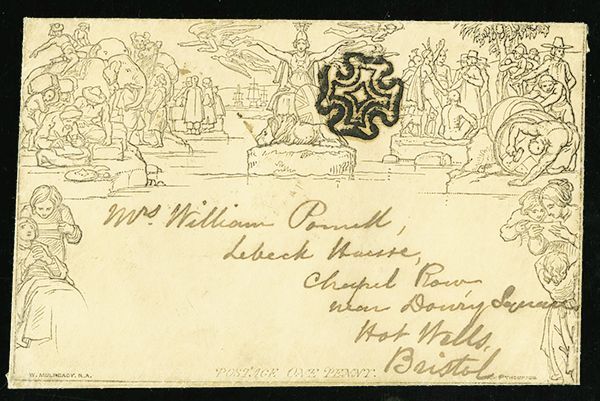 Mrs William Powell,
Lebeck House,
Chapel Row
near Dowry Square
Hot Wells,
Bristol
W. MULREADY, R.A.
POSTAGE ONE PENNY.